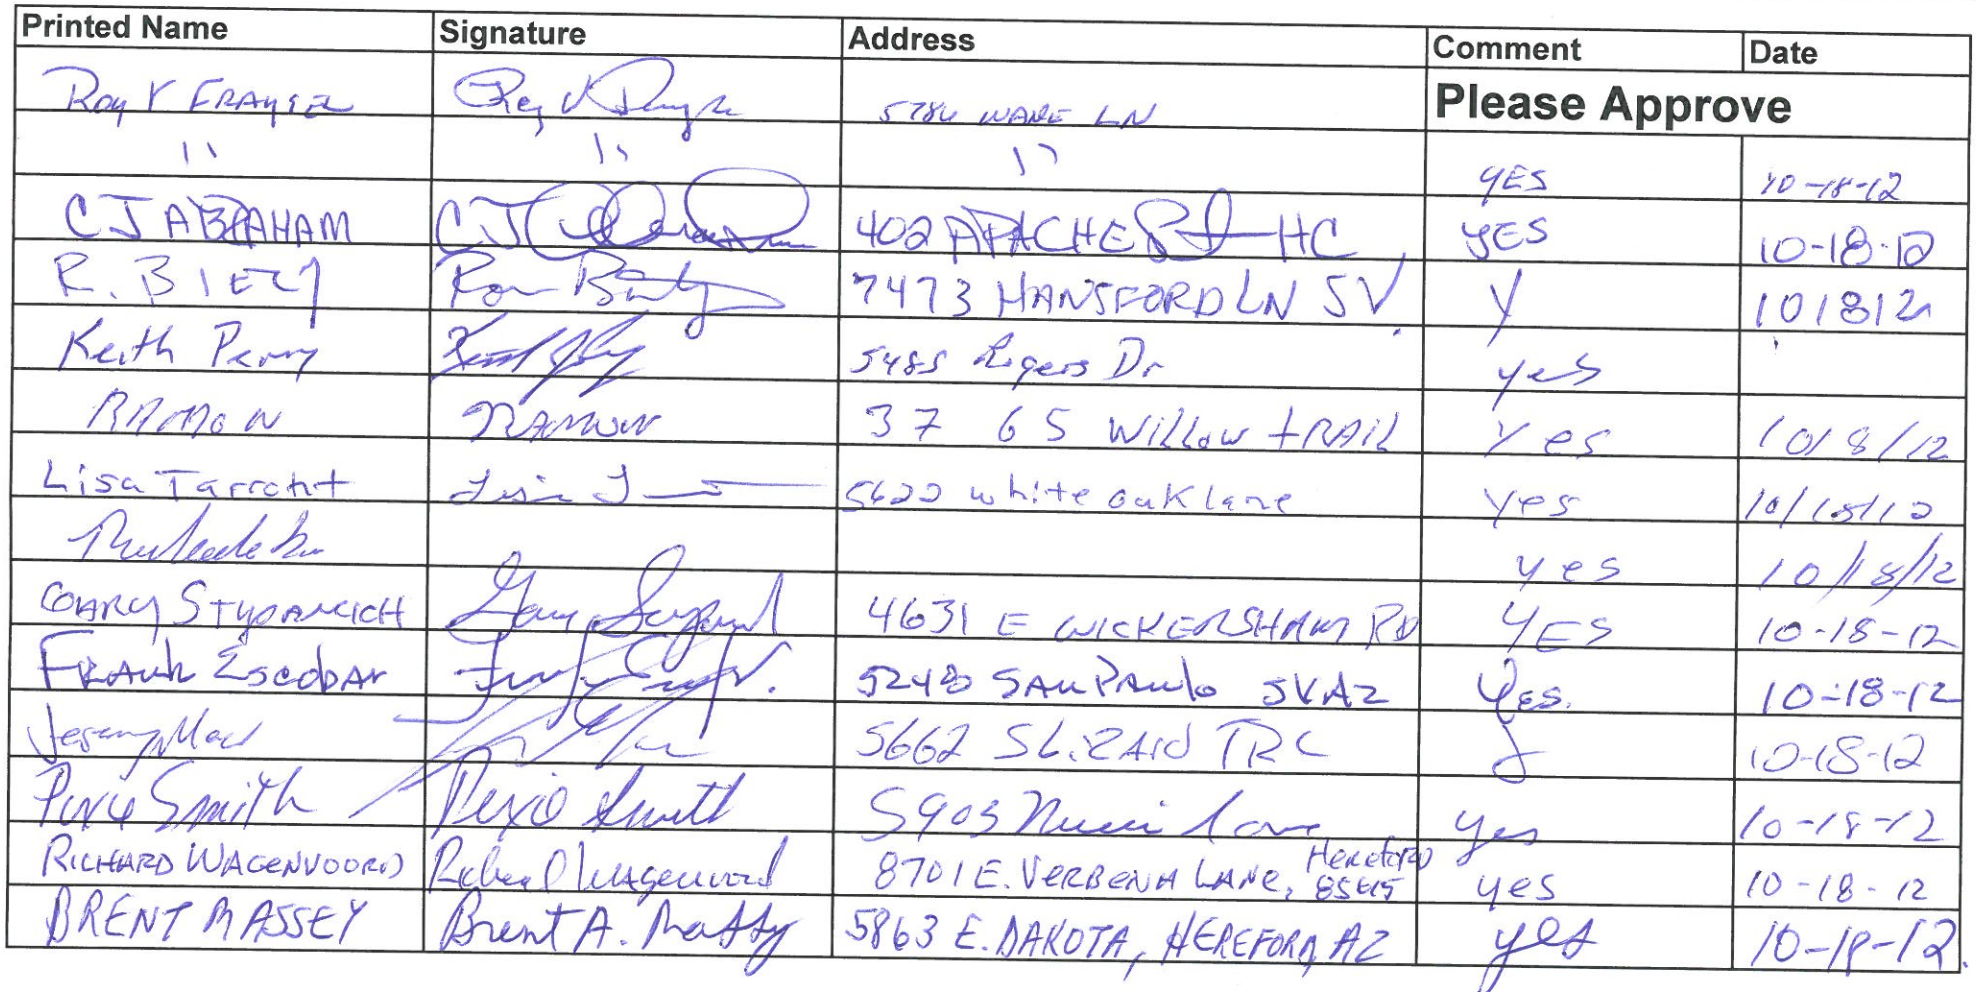 Printed Name Signature Address Comment Date
Roy V FRAYSER 5786 WARE LN Please Approve
" " " YES 10-18-12
CJ ABRAHAM CJ 402 APACHE HC YES 10-18-12
R. BIELY Ron 7473 HANSFORD LN SV. Y 101812
Keith Perry 5485 Rogers Dr yes
RAMON RAMON 37 65 WiLLow tRAIL Yes 10/8/12
Lisa Lisa 5622 white oak lane yes 10/18/12
yes 10/18/12
GARY Gary 4631 E WICKERSHAM RD YES 10-18-12
FRANK Escobar 5240 SAN PAulo SV AZ Yes. 10-18-12
Jeremy 5662 S Lizard TRL 10-18-12
Smith Smith 5903 yes 10-18-12
RICHARD WAGENVOORD Richard Wagenvoord 8701 E. VERBENA LANE, Hereford 85615 yes 10-18-12
BRENT MASSEY Brent A. Massey 5863 E. DAKOTA, HEREFORD, AZ yes 10-18-12.